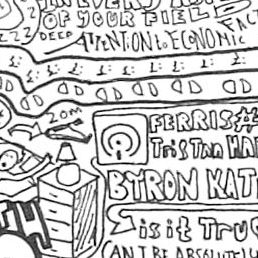 IN EVERY
OF YOUR FIEL
DEEP
ATTENTION to ECONOMIC
ZZZ
20M
FERRIS#
TrisTan HA
BYRON KAT
is it TRU
CAN I BE ABSOLUTELY